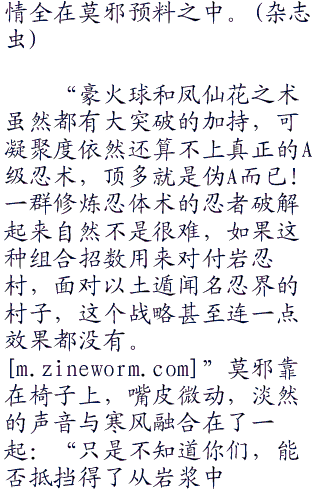 情全在莫邪预料之中。(杂志
虫)
“豪火球和凤仙花之术
虽然都有大突破的加持，可
凝聚度依然还算不上真正的A
级忍术，顶多就是伪A而已！
一群修炼忍体术的忍者破解
起来自然不是很难，如果这
种组合招数用来对付岩忍
村，面对以土遁闻名忍界的
村子，这个战略甚至连一点
效果都没有。
[m.zineworm.com]”莫邪靠
在椅子上，嘴皮微动，淡然
的声音与寒风融合在了一
起：“只是不知道你们，能
否抵挡得了从岩浆中